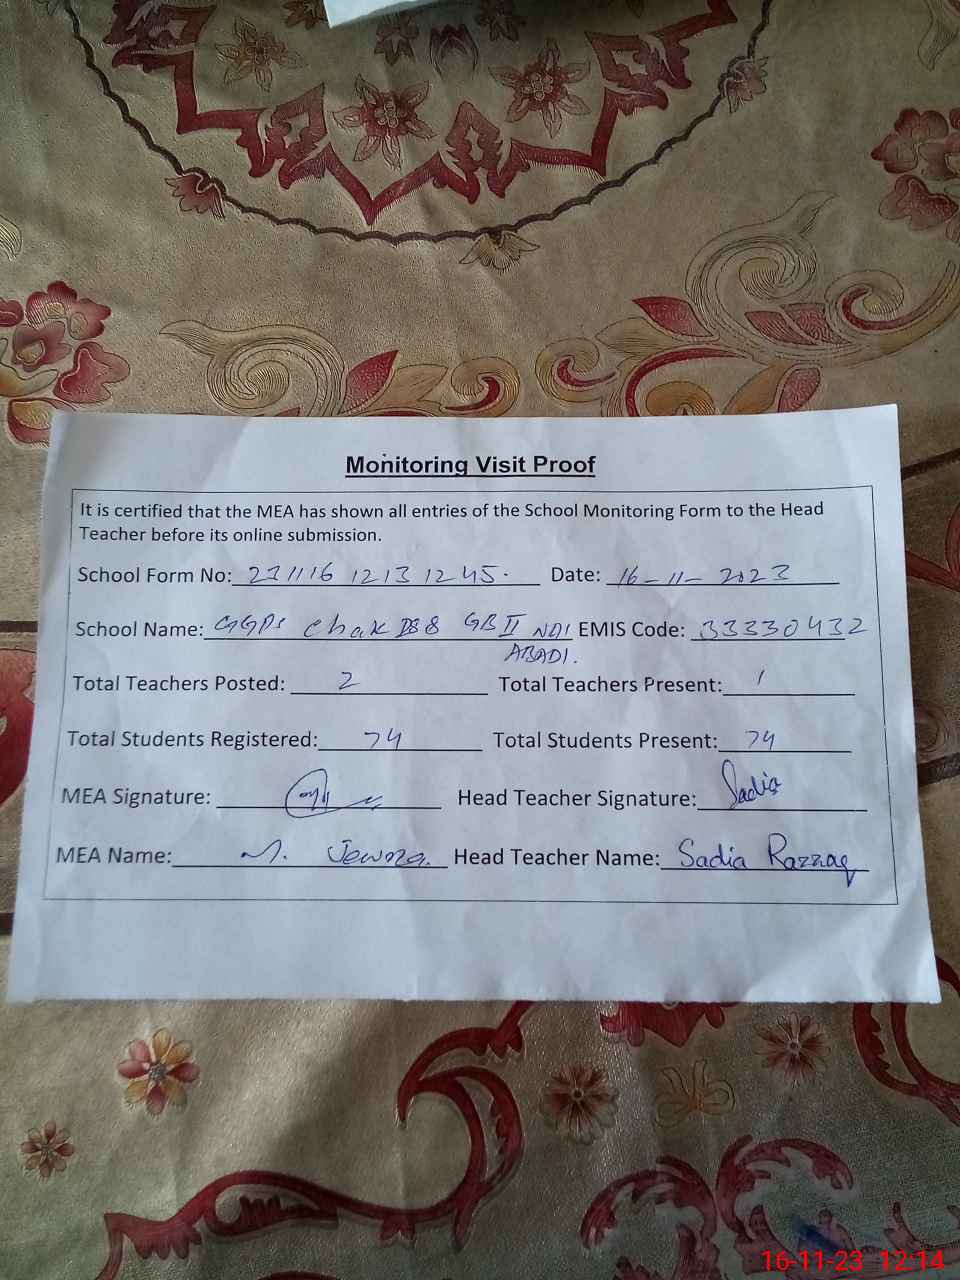 Monitoring Visit Proof
It is certified that the MEA has shown all entries of the School Monitoring Form to the Head
Teacher before its online submission.
School Form No: 231116 1213 1245. Date: 16-11-2023
School Name: GGPS Chak 288 GB II NAI EMIS Code: 33330432
ABADI.
Total Teachers Posted: 2 Total Teachers Present: 1
Total Students Registered: 74 Total Students Present: 74
MEA Signature: Head Teacher Signature: Sadia
MEA Name: M. Head Teacher Name: Sadia Razzaq
16-11-23 12:14